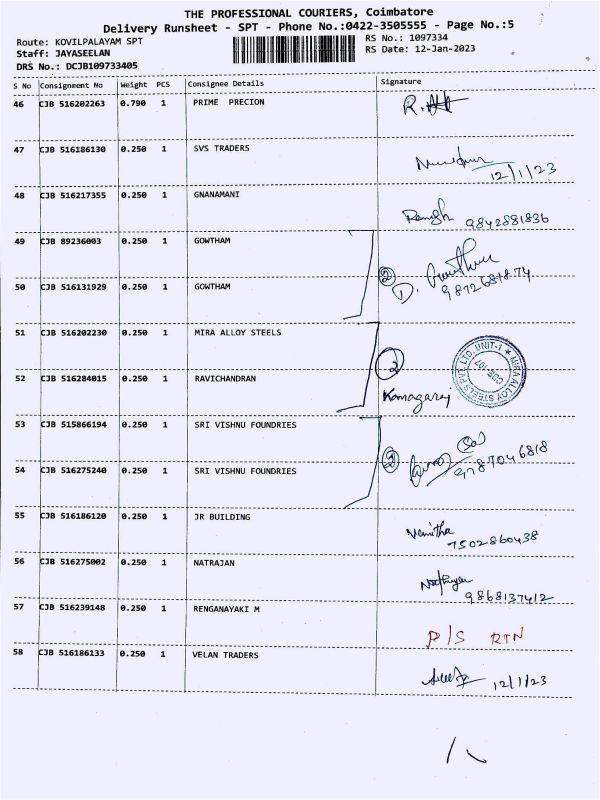 THE PROFESSIONAL COURIERS, Coimbatore
Delivery Runsheet - SPT - Phone No.:0422-3505555 - Page No.:5
Route: KOVILPALAYAM SPT
RS No.: 1097334
Staff: JAYASEELAN
RS Date: 12-Jan-2023
DRS No.: DCJB109733405
S No Consignment No Weight PCS Consignee Details Signature
46 CJB 516202263 0.790 1 PRIME PRECION R.
47 CJB 516186130 0.250 1 SVS TRADERS
12/1/23
48 CJB 516217355 0.250 1 GNANAMANI
Ramesh 9842881836
49 CJB 89236003 0.250 1 GOWTHAM
2 D.
50 CJB 516131929 0.250 1 GOWTHAM
9872681874
51 CJB 516202230 0.250 1 MIRA ALLOY STEELS
2
MIRA ALLOY STEELS PVT. LTD. UNIT-I ★
CBE 107
52 CJB 516284015 0.250 1 RAVICHANDRAN
Kamagaraj
53 CJB 515866194 0.250 1 SRI VISHNU FOUNDRIES
2
54 CJB 516275240 0.250 1 SRI VISHNU FOUNDRIES
9787046818
55 CJB 516186120 0.250 1 JR BUILDING
Namitha
7502860438
56 CJB 516275002 0.250 1 NATRAJAN
9868137412
57 CJB 516239148 0.250 1 RENGANAYAKI M
P/S RTN
58 CJB 516186133 0.250 1 VELAN TRADERS
12/1/23